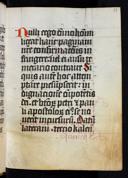 Nulli ergo omnino hom
liceat hanc paginam
nre confirmationis in
fringere vel ei ausu te
merario contraire Si
quis aut hoc attem
ptare presumpserit in
dignationem omnipoten
dei et btorum petri et pau
li apostolorum eius se no
verit incursurum. Datum
laterani tercio kalen